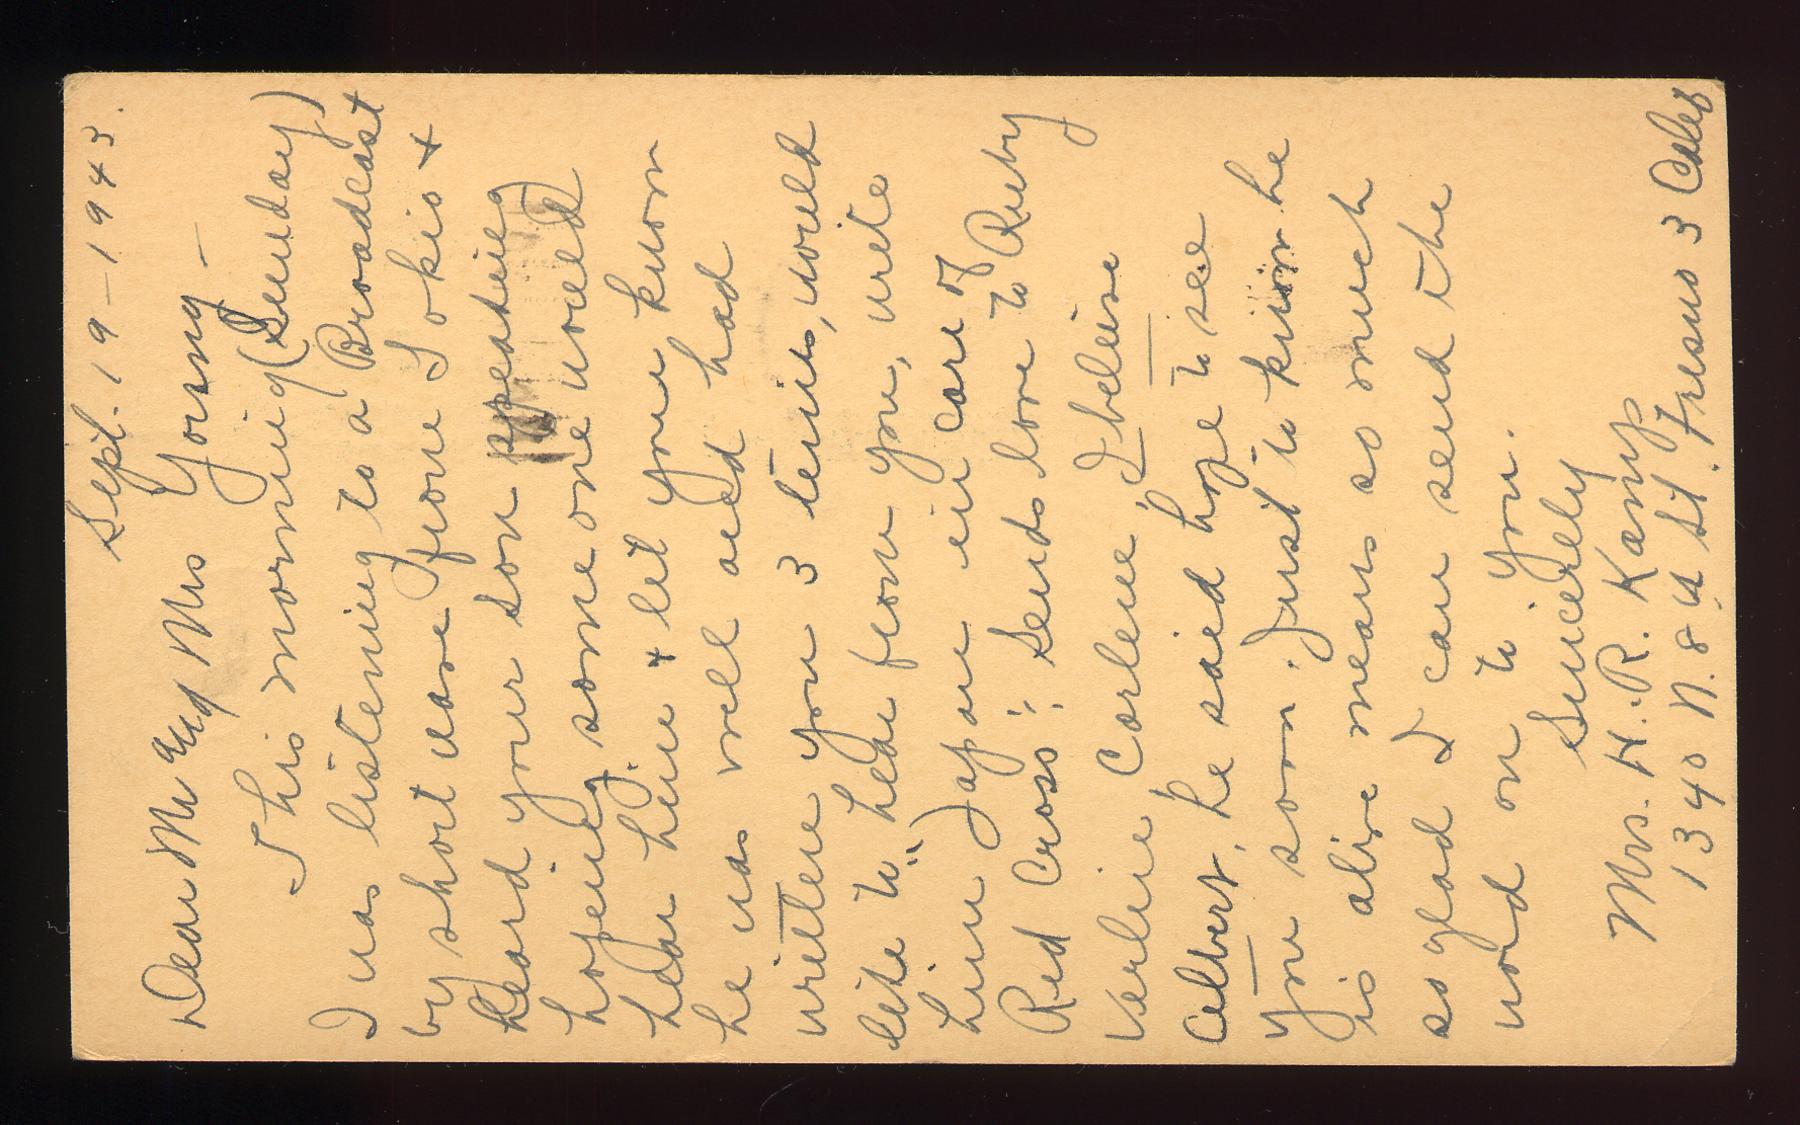 Sept. 19 - 1943.
Dear Mr and Mrs Young -
This morning (Sunday)
I was listening to a Broadcast
by short wave from Tokio &
heard your son speaking
hopeing some one would
hear him & let you know
he was well and had
written you 3 times, would
like to hear from you, write
him " Japan in care of
Red Cross : Sends love to Ruby
Verlie Carlene I beleive
Albert, he said hope to see
you soon. Just to know he
is alive means so much
so glad I can send the
word on to you.
Sincerely
Mrs. H. R. Kamp
1340 N. 8th St. Fresno 3 Calif